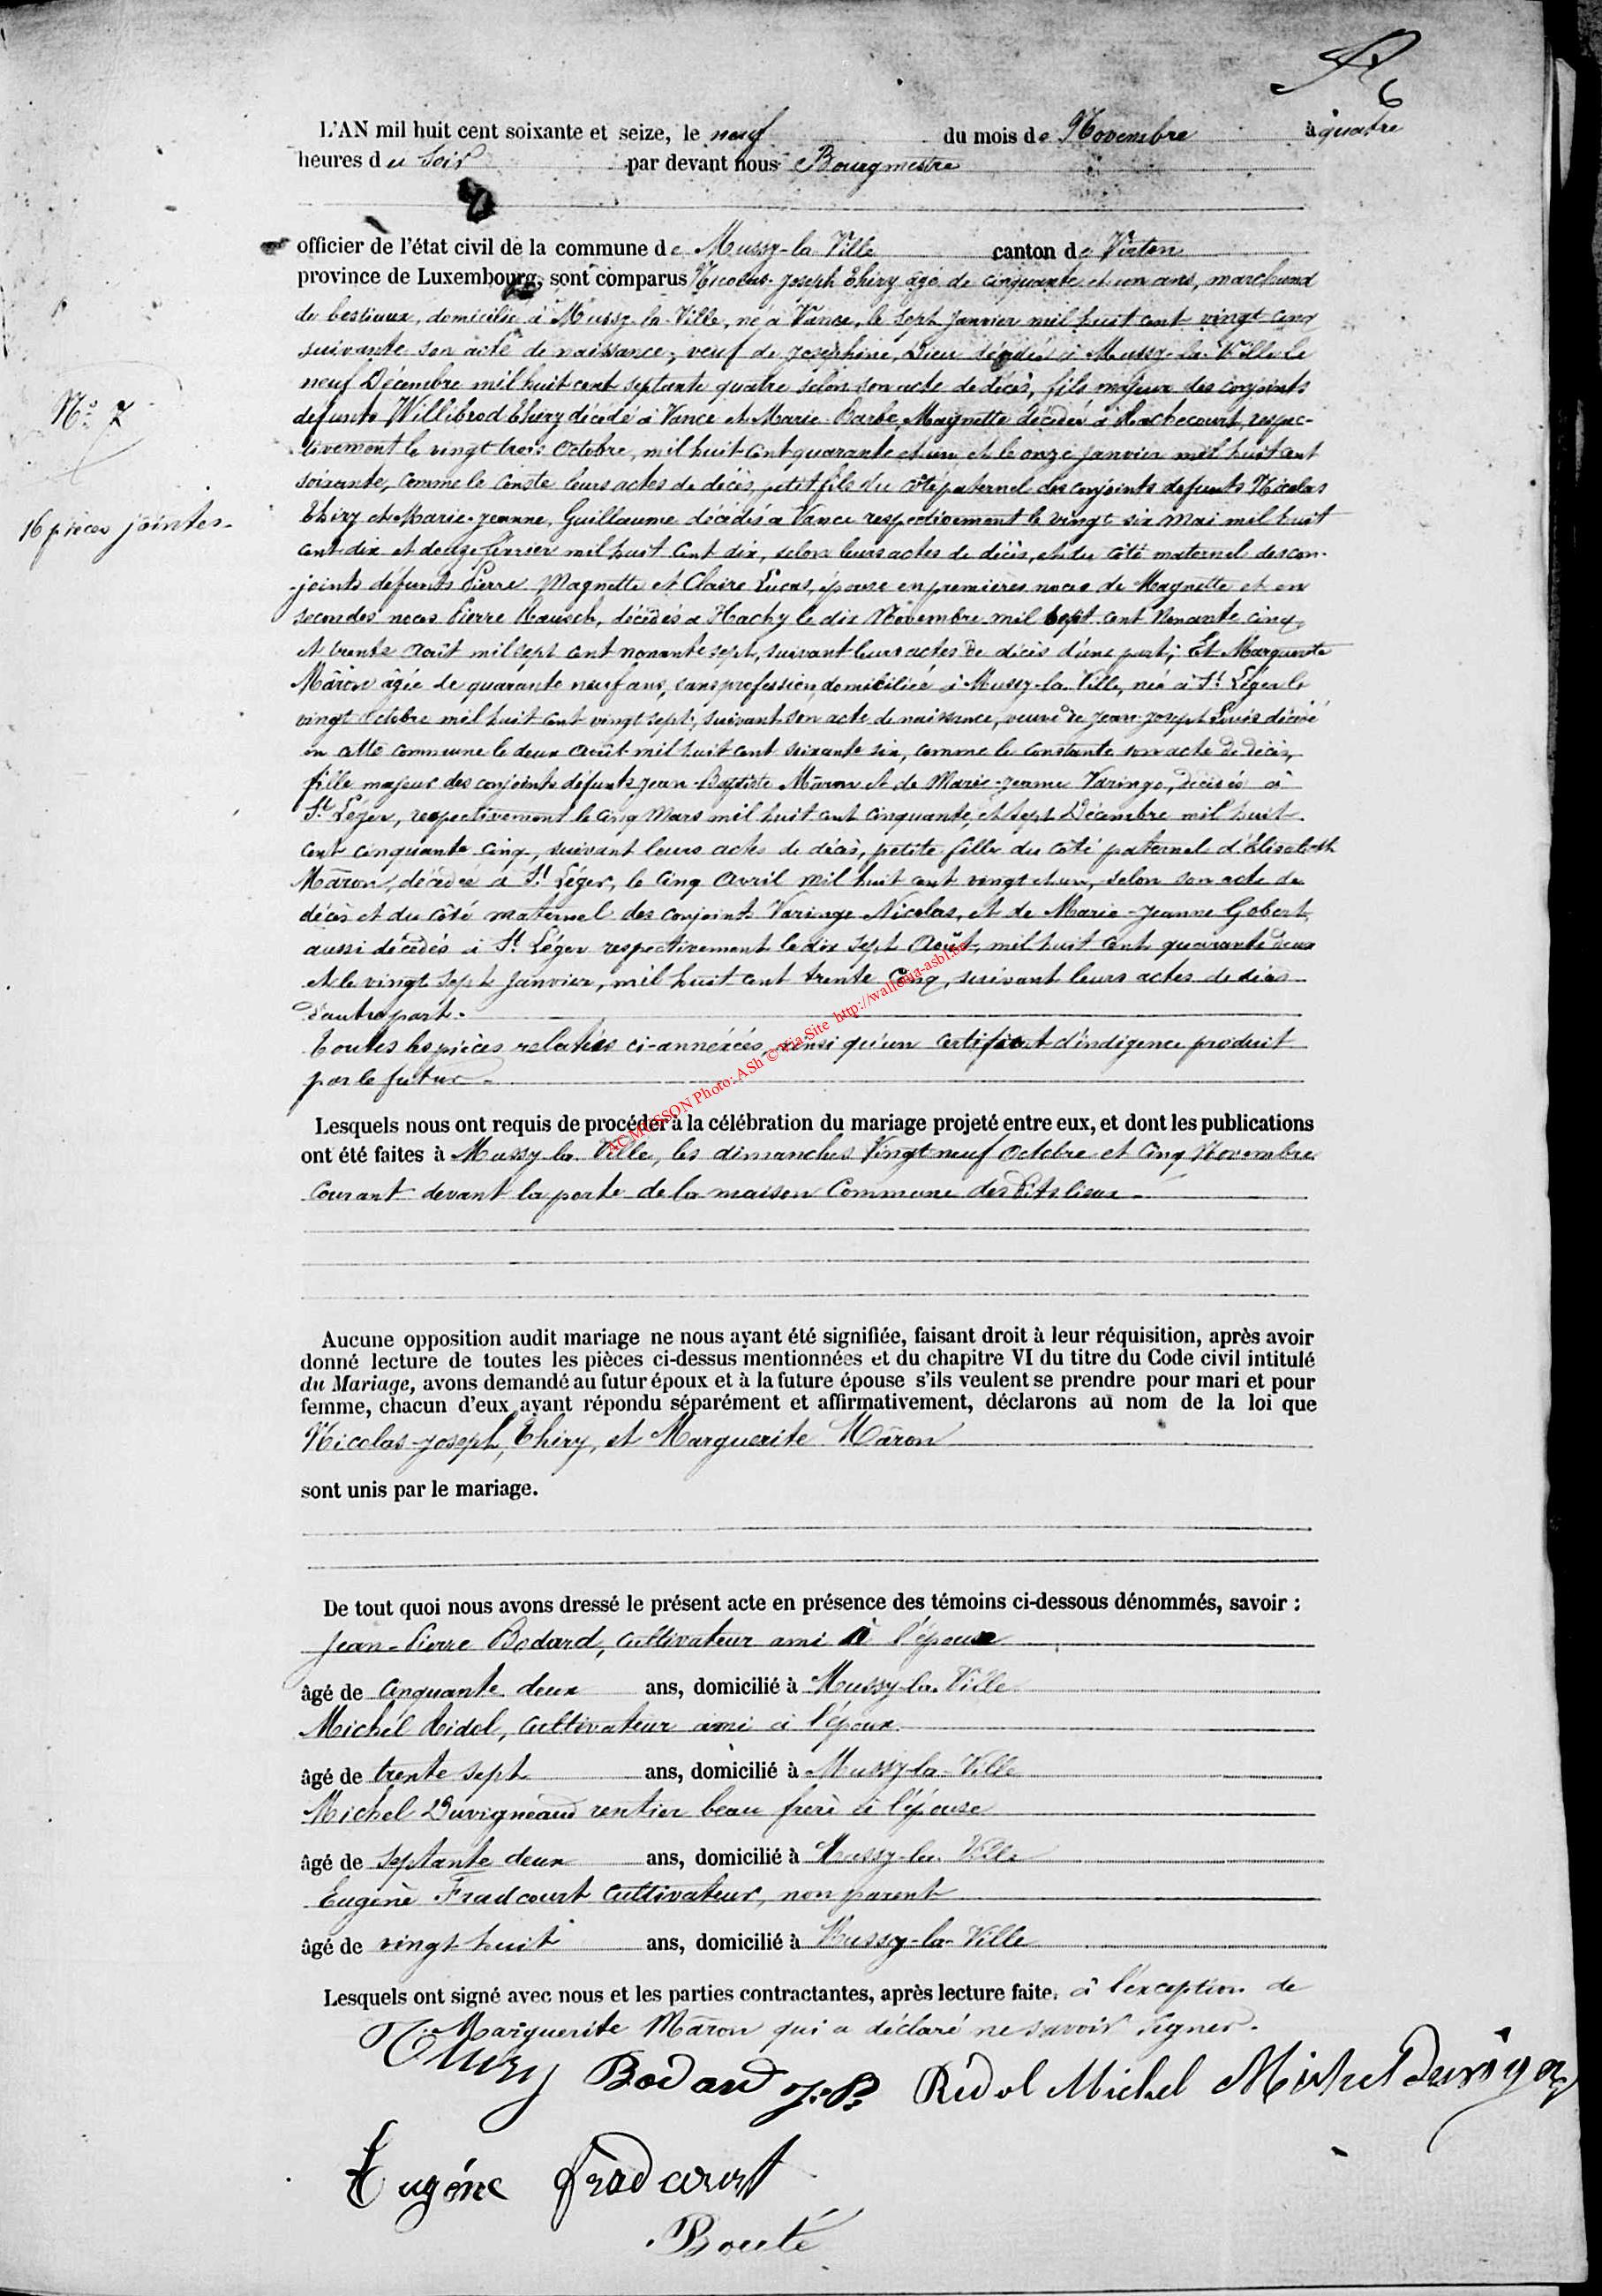 6
L'AN mil huit cent soixante et seize, le neuf du mois de Novembre à quatre
heures du Soir par devant nous Bourgmestre
officier de l'état civil de la commune de Mussy-la-Ville canton de Virton
province de Luxembourg, sont comparus Nicolas-Joseph Thiry âgé de cinquante et un ans, marchand
de bestiaux, domicilié à Mussy-la-Ville, né à Vance, le sept Janvier mil huit cent vingt cinq
suivante son acte de naissance, veuf de Joséphine, Dieu décédée à Mussy-la-Ville le
neuf Décembre mil huit cent septante quatre selon son acte de décès, fils majeur des conjoints
défunts Willibrod Thiry décédé à Vance et Marie-Barbe, Magnette décédée à Rachecourt, respec-
N° 7
tivement le vingt trois Octobre, mil huit cent quarante et un et le onze janvier mil huit cent
soixante, comme le conste leurs actes de décès, petit fils du côté paternel des conjoints défunts Nicolas
16 pièces jointes.
Thiry et Marie-Jeanne, Guillaume décédés à Vance respectivement le vingt six Mai mil huit
cent dix et douze février mil huit cent dix, selon leurs actes de décès, et du côté maternel des con-
-joints défunts Pierre Magnette et Claire Lucas, épouse en premières noces de Magnette et en
secondes noces Pierre Rausch, décédés à Hachy le dix Novembre mil sept cent Nonante cinq
et trente Août mil sept cent nonante sept, suivant leurs actes de décès d'une part; Et Marguerite
Mâron âgée de quarante neuf ans, sans profession, domiciliée à Mussy-la-Ville, née à St Léger le
vingt Octobre mil huit cent vingt sept, suivant son acte de naissance, veuve de Jean-Joseph Louis décédé
en cette commune le deux Août mil huit cent soixante six, comme le constante son acte de décès,
fille majeur des conjoints défunts Jean-Baptiste Mâron et de Marie-Jeanne Varinge, décédés à
St Léger, respectivement le cinq Mars mil huit cent cinquante, et sept Décembre mil huit
cent cinquante cinq, suivant leurs actes de décès, petite fille du côté paternel d'Elisabeth
Mâron, décédée à St Léger, le cinq Avril mil huit cent vingt et un, selon son acte de
décès et du côté maternel des conjoint Varinge Nicolas, et de Marie-Jeanne Gobert,
aussi décédés à St Léger respectivement le dix sept Août, mil huit cent quarante deux
et le vingt sept Janvier, mil huit cent trente cinq, suivant leurs actes de décès
d'autre part.
Toutes les pièces relatées ci-annéxées, ainsi qu'un certificat d'indigence produit
par le futur.
ACMUSSON Photo: ASh © Via Site http://wallonia-asbl.be
Lesquels nous ont requis de procéder à la célébration du mariage projeté entre eux, et dont les publications
ont été faites à Mussy-la-Ville, les dimanches Vingt neuf Octobre et Cinq Novembre
Courant devant la porte de la maison Commune des dits lieux.
Aucune opposition audit mariage ne nous ayant été signifiée, faisant droit à leur réquisition, après avoir
donné lecture de toutes les pièces ci-dessus mentionnées et du chapitre VI du titre du Code civil intitulé
du Mariage, avons demandé au futur époux et à la future épouse s'ils veulent se prendre pour mari et pour
femme, chacun d'eux ayant répondu séparément et affirmativement, déclarons au nom de la loi que
Nicolas-Joseph, Thiry, et Marguerite Mâron
sont unis par le mariage.
De tout quoi nous avons dressé le présent acte en présence des témoins ci-dessous dénommés, savoir :
Jean-Pierre Bodard, cultivateur ami à l'époux
âgé de cinquante deux ans, domicilié à Mussy-la-Ville
Michel Ridol, cultivateur ami à l'époux.
âgé de trente sept ans, domicilié à Mussy-la-Ville
Michel Duvigneaud rentier beau frère à l'épouse
âgé de septante deux ans, domicilié à Mussy-la-Ville
Eugène Fradcourt cultivateur, non parent
âgé de vingt huit ans, domicilié à Mussy-la-Ville
Lesquels ont signé avec nous et les parties contractantes, après lecture faite, à l'exception de
Marguerite Mâron qui a déclaré ne savoir signer.
Thiry Bodard J.P. Ridol Michel Michel Duvign
Eugéne fradcourt
Bouté